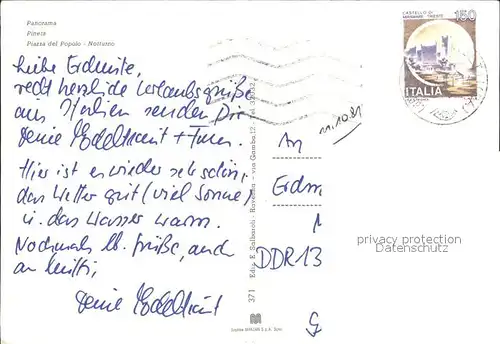 Panorama
Pineta
Piazza del Popolo - Notturno
Liebe Erdmute,
recht herzliche Urlaubsgrüße
aus Italien senden Dir
Deine Edeltraut +
Hier ist es wieder sehr schön,
das Wetter gut (viel Sonne)
u. das Wasser warm.
Nochmals lb. Grüße, auch
an Mutti,
Deine Edeltraut
371 Ediz. E. Salbaroli - Ravenna - via Gamba, 12
CASTELLO DI
MIRAMARE TRIESTE
150
ITALIA
An
Erdm
DDR 13
G
privacy protection
watermark